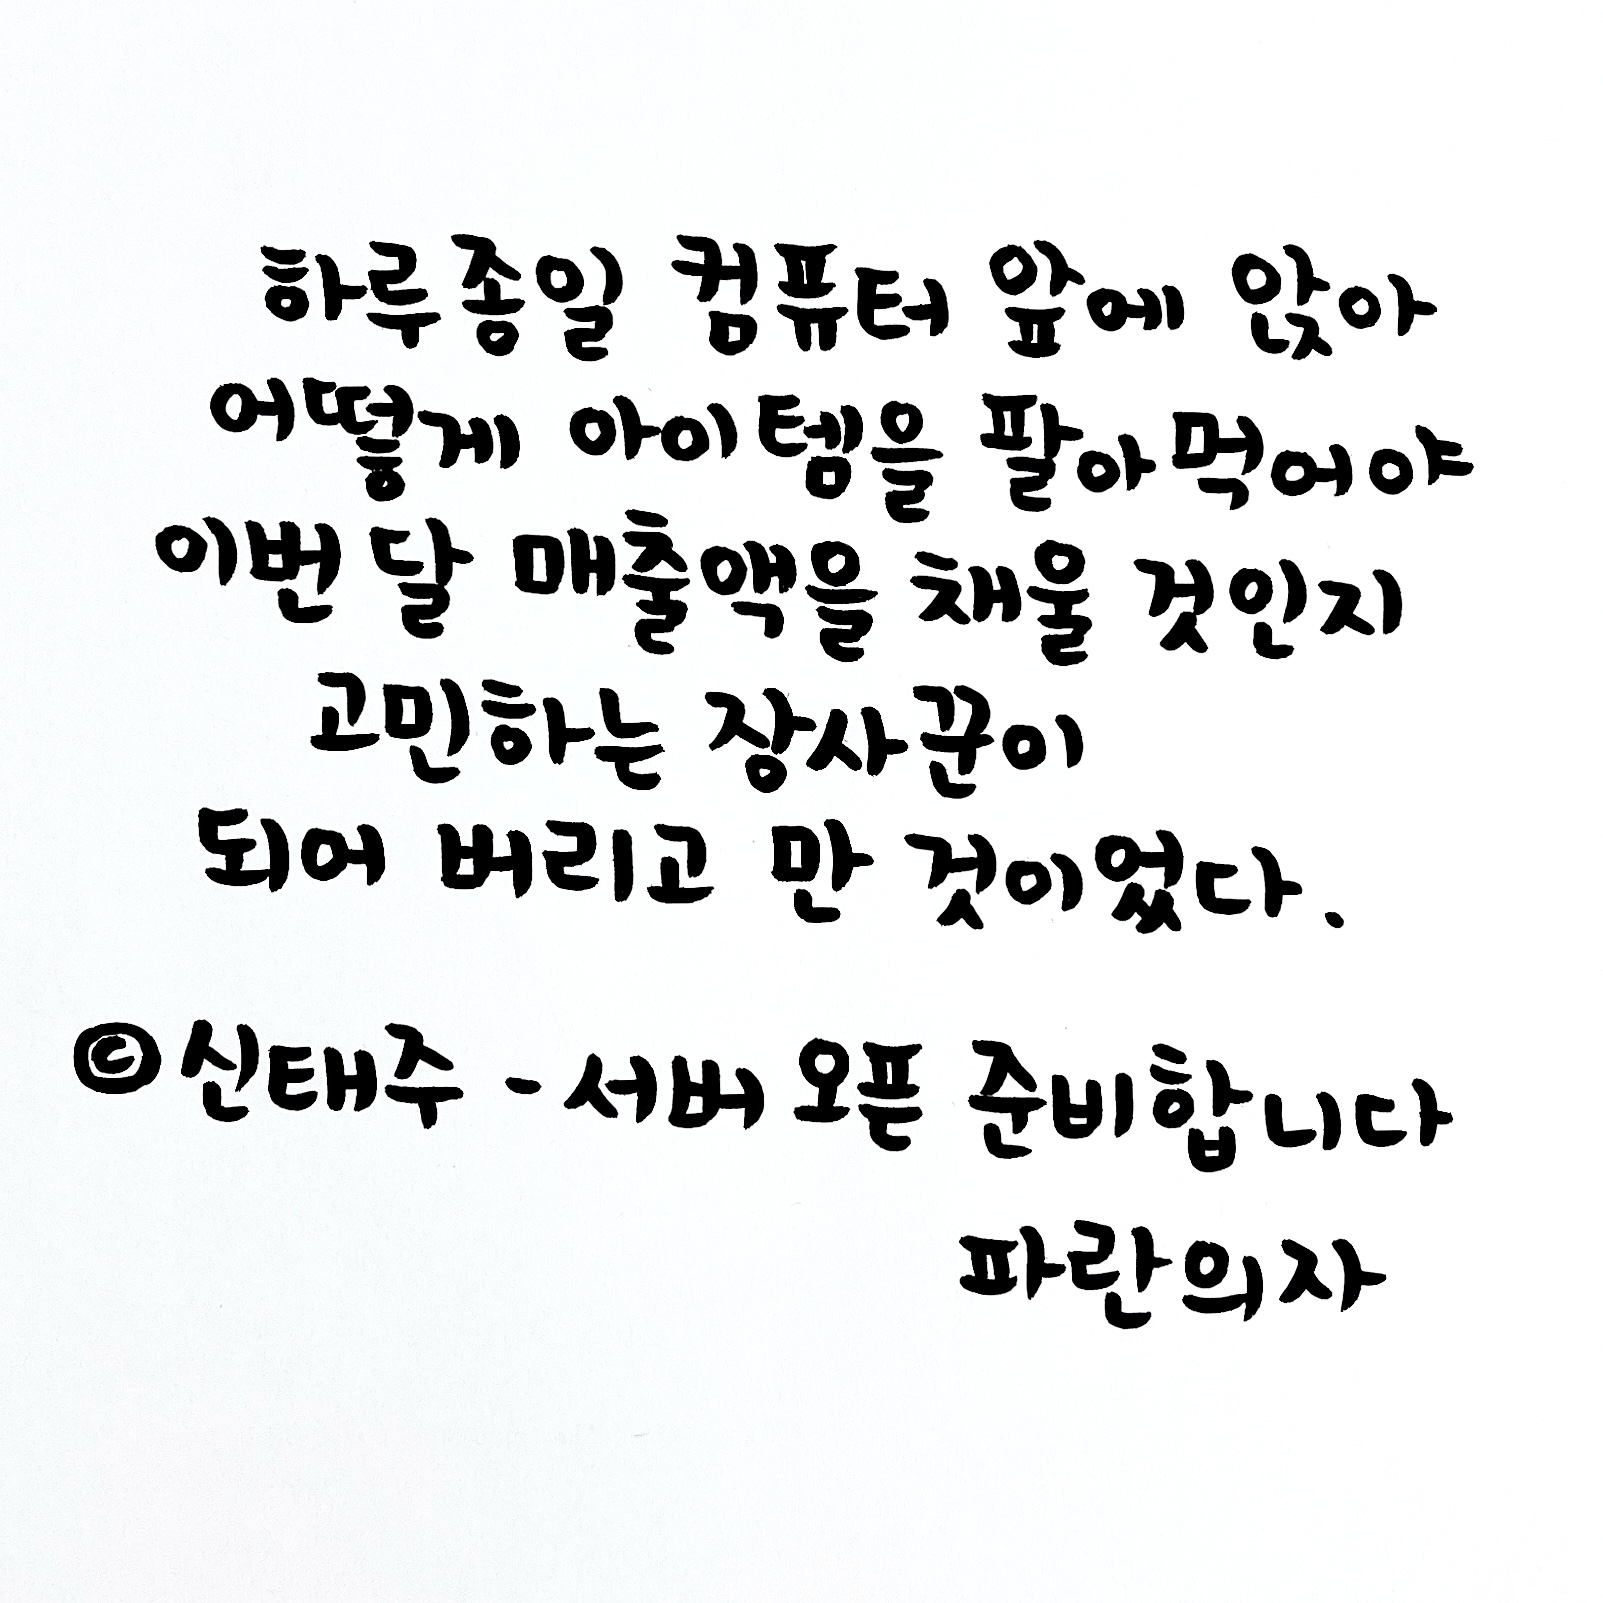 하루종일 컴퓨터 앞에 앉아
어떻게 아이템을 팔아먹어야
이번 달 매출액을 채울 것인지
고민하는 장사꾼이
되어 버리고 만 것이었다.
©신태주 - 서버 오픈 준비합니다
파란의자